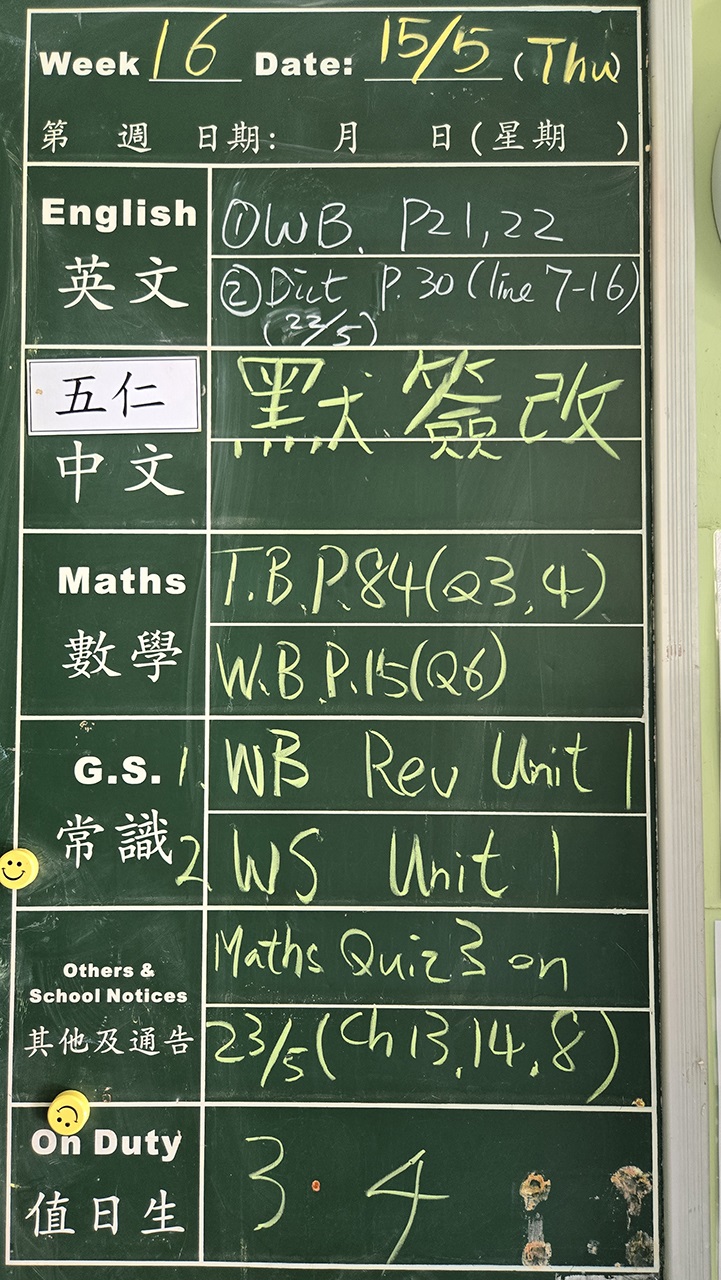 Week 16 Date: 15/5 (Thu)
第 週 日期: 月 日(星期 )
English
英文
①WB. P21,22
②Dict P.30 (line 7-16)
(22/5)
五仁
中文
默簽改
Maths
數學
T.B.P.84(Q3,4)
W.B.P.15(Q6)
G.S.
常識
1. WB Rev Unit 1
2. WS Unit 1
Others &
School Notices
其他及通告
Maths Quiz 3 on
23/5(Ch 13,14,8)
On Duty
值日生
3. 4